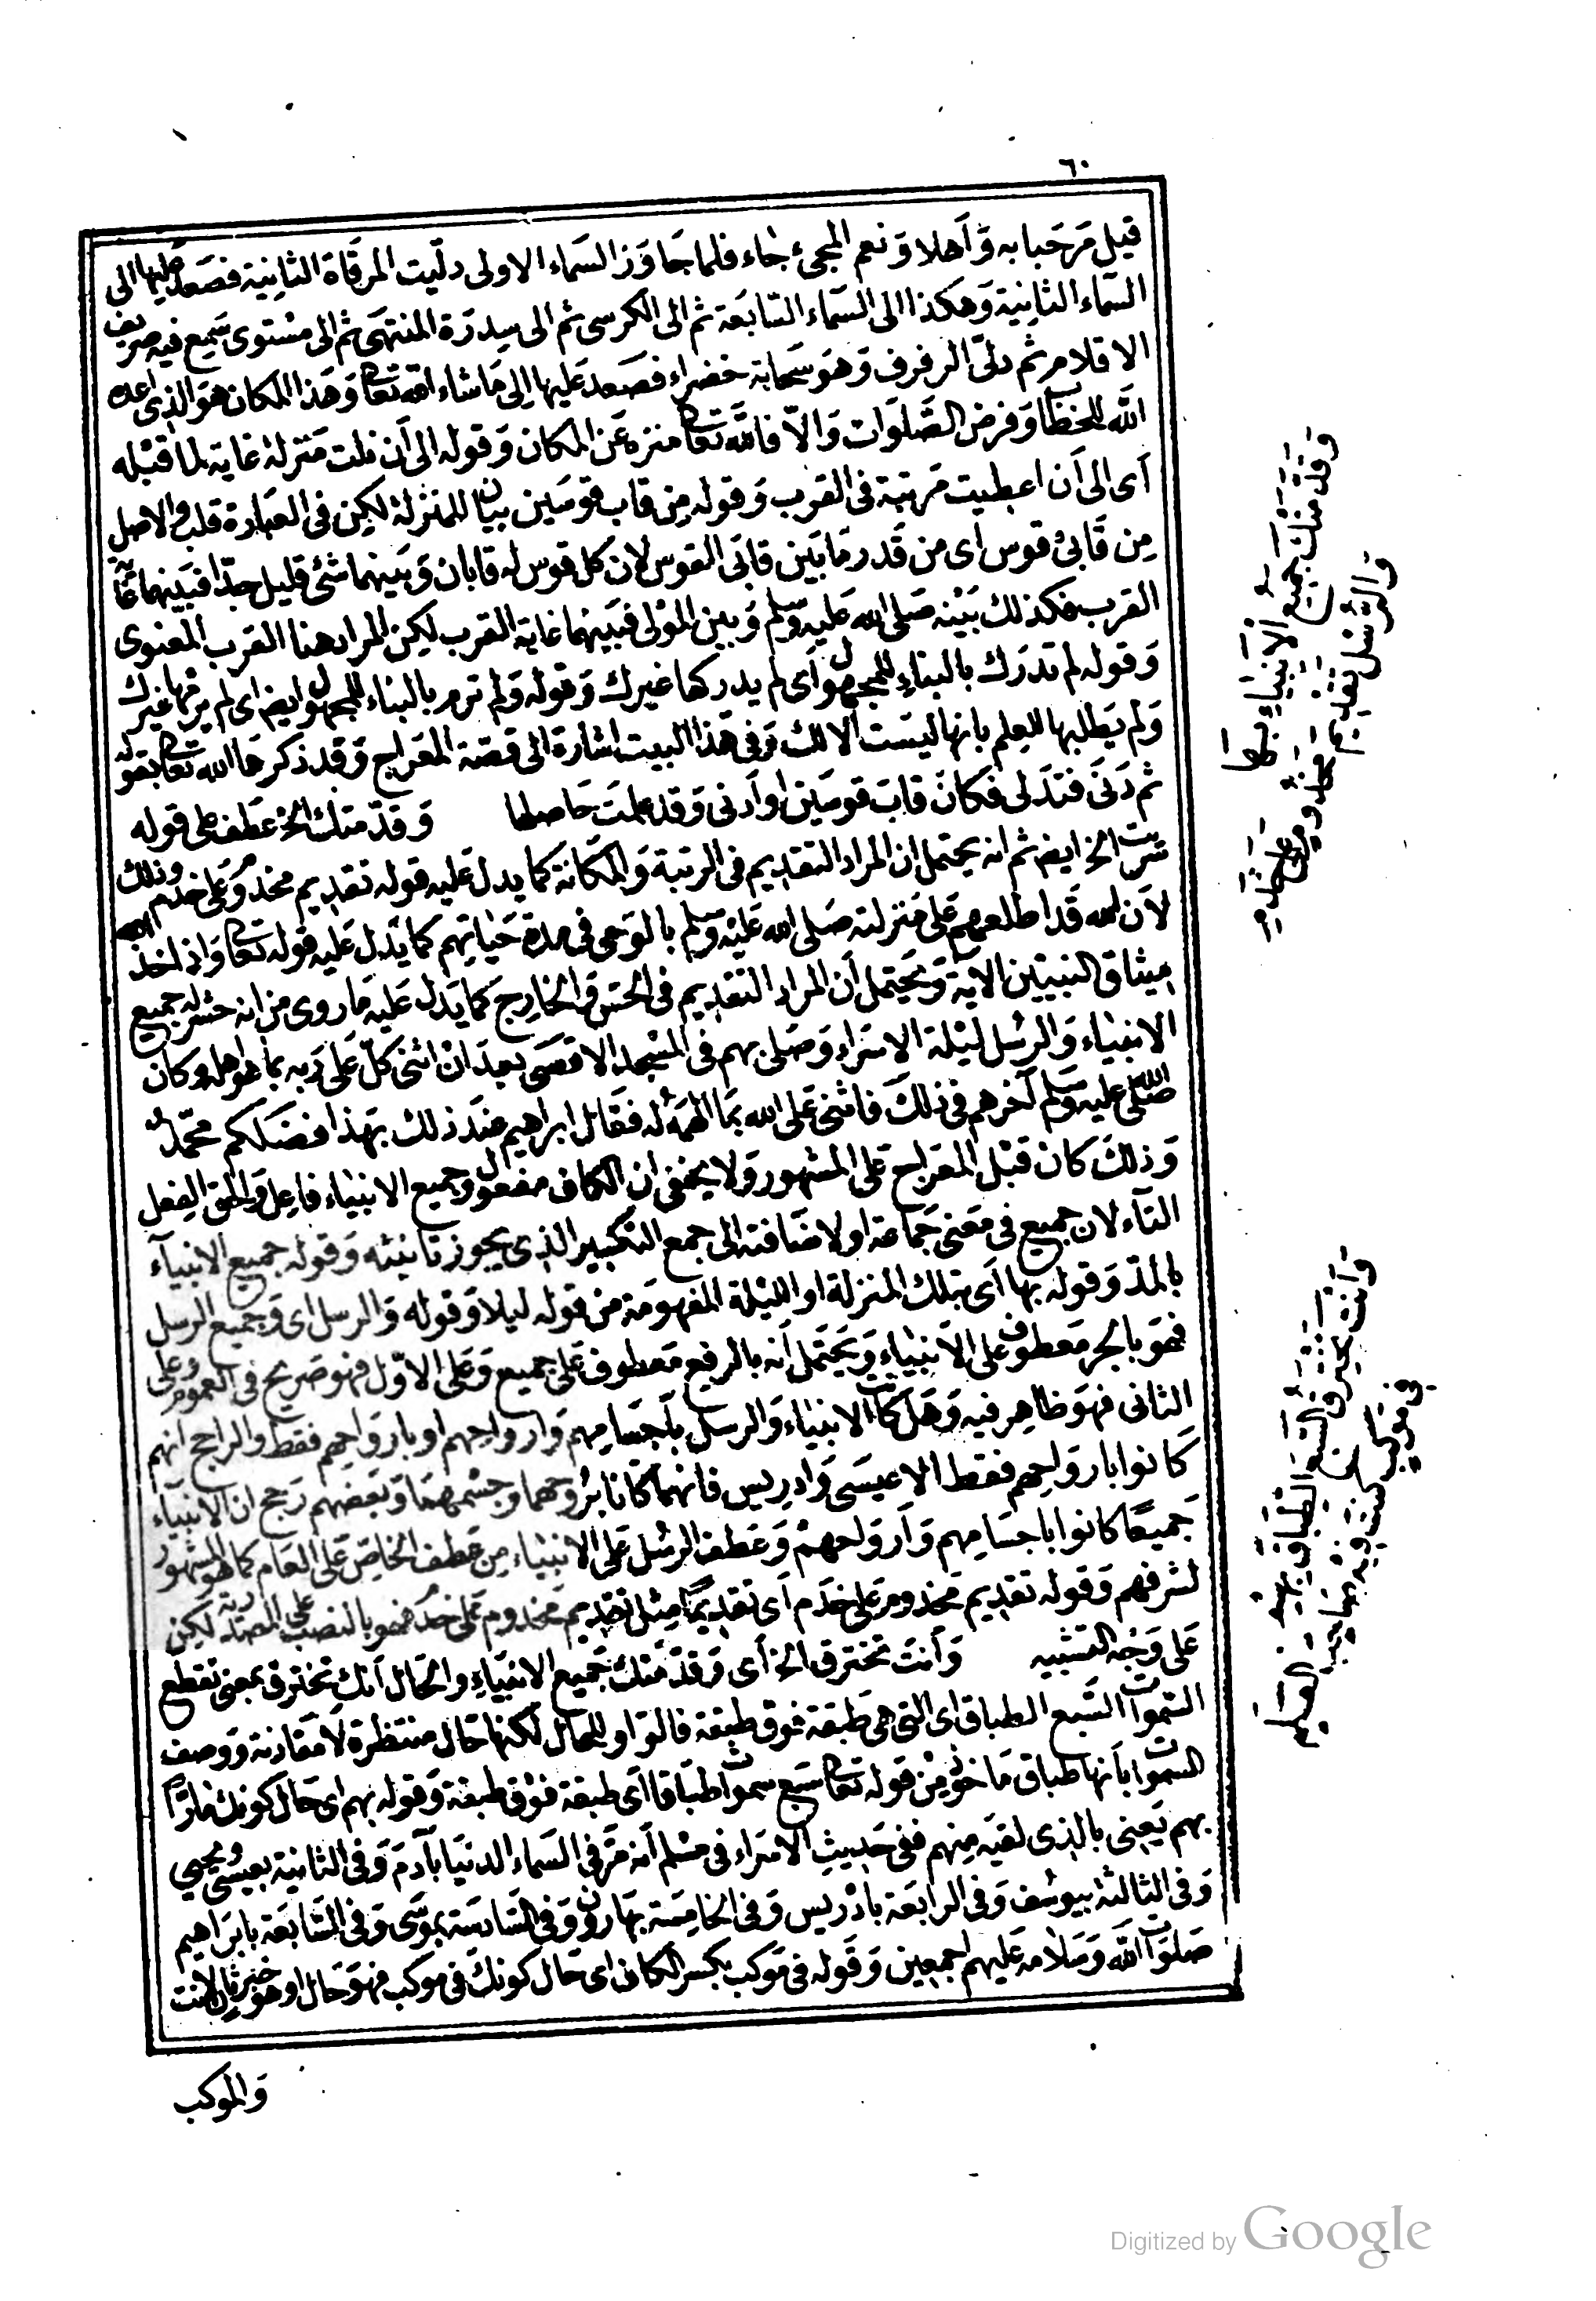 ٦٠
قيل مرحبا به وأهلا ونعم المجيء جاء فلما جاوز السماء الاولى دليت المرقاة الثانية فصعد عليها الى
السماء الثانية وهكذا الى السماء السابعة ثم الى الكرسى ثم الى سدرة المنتهى ثم الى مستوى سمع فيه صريف
الاقلام ثم دلى الرفرف وهو سحابة خضراء فصعد عليها الى ما شاء الله تعا وهذا المكان هو الذى اعده
الله للخطاب وفرض الصلوات والا فالله تعا منزه عن المكان وقوله الى أن نلت منزلة غاية لما قبله
أى الى أن اعطيت مرتبة فى القرب وقوله من قاب قوسين بيان للمنزلة لكن فى العبارة قلب والاصل
من قابى قوس اى من قدر ما بين قابى القوس لان كل قوس له قابان وبينهما شئ قليل جدا فبينهما غاية
القرب فكذلك بينه صلى الله عليه وسلم وبين المولى فبينهما غاية القرب لكن المراد هنا القرب المعنوى
وقوله لم تدرك بالبناء للمجهول أى لم يدركها غيرك وقوله ولم ترم بالبناء للمجهول ايضا اى لم يرمها غيرك
ولم يطلبها للعلم بانها ليست الا لك وفى هذا البيت اشارة الى قصة المعراج وقد ذكرها الله تعا بقوله
ثم دنى فتدلى فكان قاب قوسين او أدنى وقد علمت حاصلها وقدمتك الخ عطف على قوله
سريت الخ ايضا ثم انه يحتمل ان المراد التقديم فى الرتبة والمكانة كما يدل عليه قوله تقديم مخدوم على خدم وذلك
لان الله قد اطلعهم على منزلته صلى الله عليه وسلم بالوحى فى مدة حياتهم كما يدل عليه قوله تعا واذ اخذ الله
ميثاق النبيين الاية ويحتمل أن المراد التقديم فى الحس والخارج كما يدل عليه ما روى من انه حشر له جميع
الانبياء والرسل ليلة الاسراء وصلى بهم فى المسجد الاقصى بعد ان اثنى كل على ربه بما هو اهله وكان
صلى الله عليه وسلم آخرهم فى ذلك فاثنى على الله بما الهمه له فقال ابراهيم عند ذلك بهذا فضلكم محمد
وذلك كان قبل المعراج على المشهور ولا يخفى ان الكاف مفعول وجميع الانبياء فاعل والحق الفعل
التاء لان جميع فى معنى جماعة او لاضافته الى جمع التكسير الذى يجوز تانيثه وقوله جميع الانبيآء
بالمد وقوله بها أى بتلك المنزلة او الليلة المفهومة من قوله ليلا وقوله والرسل اى وجميع الرسل
فهو بالجر معطوف على الانبياء ويحتمل أنه بالرفع معطوف على جميع وعلى الاول فهو صريح فى العموم وعلى
الثانى فهو ظاهر فيه وهل كانت الانبياء والرسل بأجسامهم وارواحهم او بارواحهم فقط والراجح انهم
كانوا بارواحهم فقط الا عيسى وادريس فانهما كانا بروحهما وجسمهما وبعضهم رجح ان الانبيآء
جميعا كانوا باجسامهم وأرواحهم وعطف الرسل على الانبياء من عطف الخاص على العام كما هو مشهور
لشرفهم وقوله تقديم مخدوم على خدم أى تقديما مثل تقديم مخدوم على خدم فهو بالنصب على المصدرية لكن
على وجه التشبيه وأنت تخترق الخ أى وقدمتك جميع الانبياء والحال أنك تخترق بمعنى تقطع
السموات السبع الطباق اى التى هى طبقة فوق طبقة فالواو للحال لكنها حال منتظرة لا مقارنة ووصف
السموات بأنها طباق مأخوذ من قوله تعا سبع سموات طباقا أى طبقة فوق طبقة وقوله بهم اى حال كونك مارا
بهم يعنى بالذى لقيه منهم ففى حديث الاسراء فى مسلم أنه مر فى السماء الدنيا بآدم وفى الثانية بعيسى ويحيى
وفى الثالثة بيوسف وفى الرابعة بادريس وفى الخامسة بهارون وفى السادسة بموسى وفى السابعة بابراهيم
صلوات الله وسلامه عليهم اجمعين وقوله فى موكب بكسر الكاف اى حال كونك فى موكب فهو حال او هو خبر ثان لانت
والموكب
وقدمتك جميع الانبياء بها
والرسل تقديم مخدوم على خدم
وأنت تخترق السبع الطباق بهم
فى موكب كنت فيه صاحب العلم
Digitized by Google